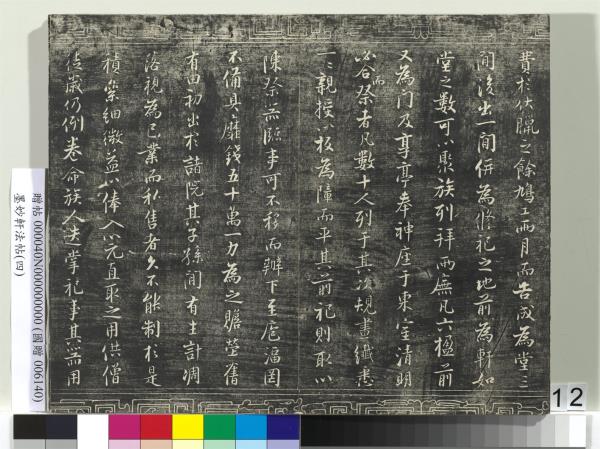 費於伏臘之餘鳩工兩月而告成為堂三
間後出一間併為脩祀之地前為軒如
堂之數可以聚族列拜兩廡凡六楹前
又為門及享亭奉神座于東室清明
必合祭而者凡數十人列于其次規畫纖悉
一一親授以板為障而平其前祀則取以
陳祭器臨事可不移而辦下至庖湢罔
不備具靡錢五十萬一力為之贍塋舊
有田初出於諸院其子孫間有主計凋
落視為己業而私售者久不能制於是
積案細微益以俸入以元直取之用供僧
徒歲仍例卷命族人迭掌祀事其器用
贈帖 000040N000000000 (國贈 006140)
墨妙軒法帖(四)
12